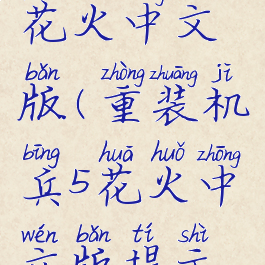 花火中文
bǎn zhòng zhuāng jī
版(重装机
bīng huā huǒ zhōng
兵5花火中
wén bǎn tí shì
文版提示